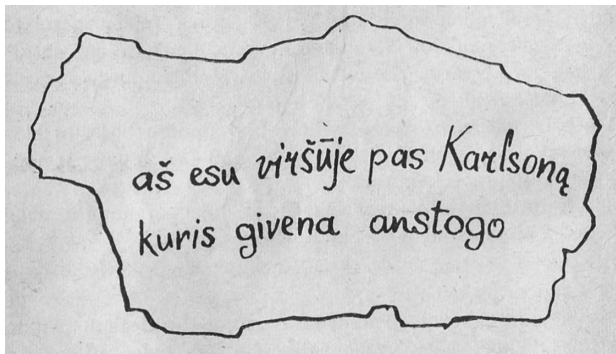 aš esu viršūje pas Karlsoną
kuris givena anstogo